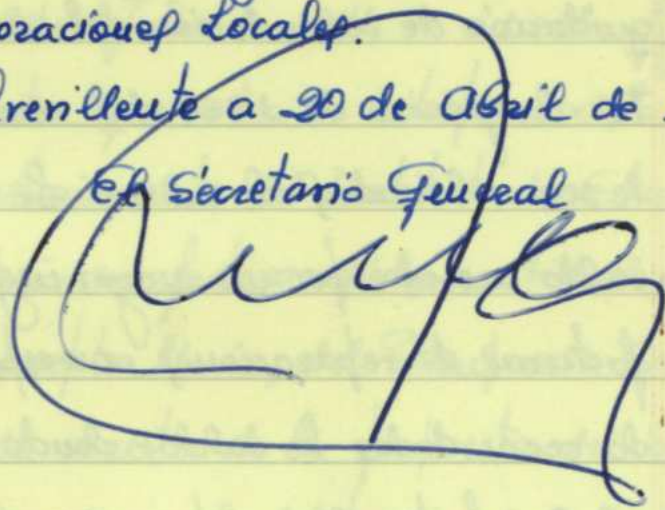 oraciones Locales.
revillente a 20 de Abril de
El Secretario General